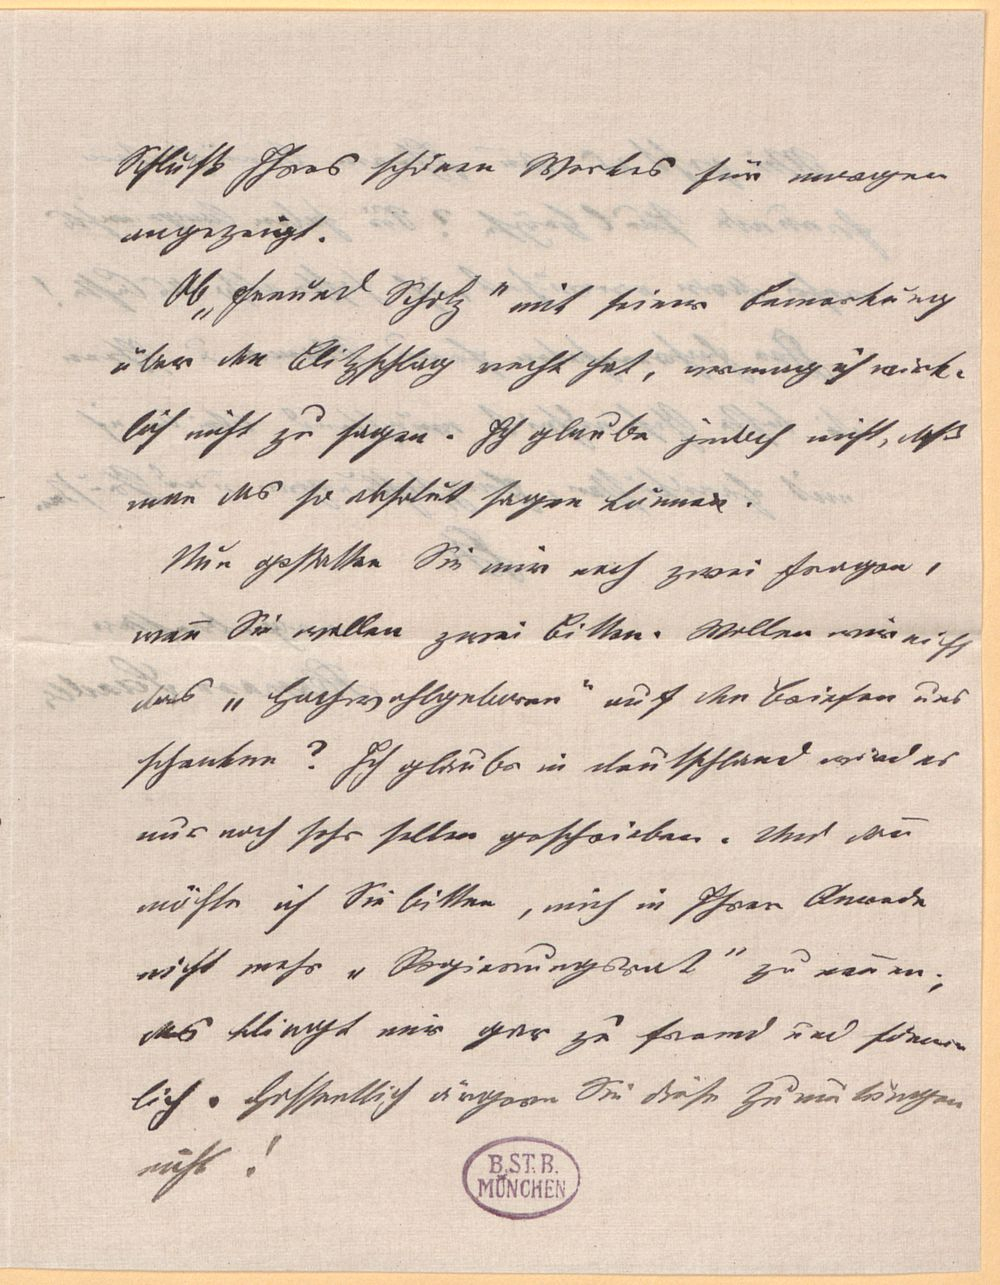 Schluß Ihres schönen Werkes für morgen
angezeigt.
Ob „Freund Scholz" mit seiner Bemerkung
über den Blitzschlag recht hat, vermag ich wirk-
lich nicht zu sagen. Ich glaube jedoch nicht, daß
man das so absolut sagen könne.
Nun gestatten Sie mir noch zwei Fragen,
wenn̄ Sie wollen zwei Bitten. Wollen wir nicht
das „Hochwohlgeboren" auf den Briefen uns
schenken? Ich glaube in Deutschland wird es
nur noch sehr selten geschrieben. Und dan̄
möchte ich Sie bitten, mich in Ihrer Anrede
nicht mehr „Regierungsrat" zu nen̄en;
das klingt mir gar zu fremd und förm-
lich. Hoffentlich ärgern Sie diese Zumutungen
nicht!
B.ST.B.
MÜNCHEN